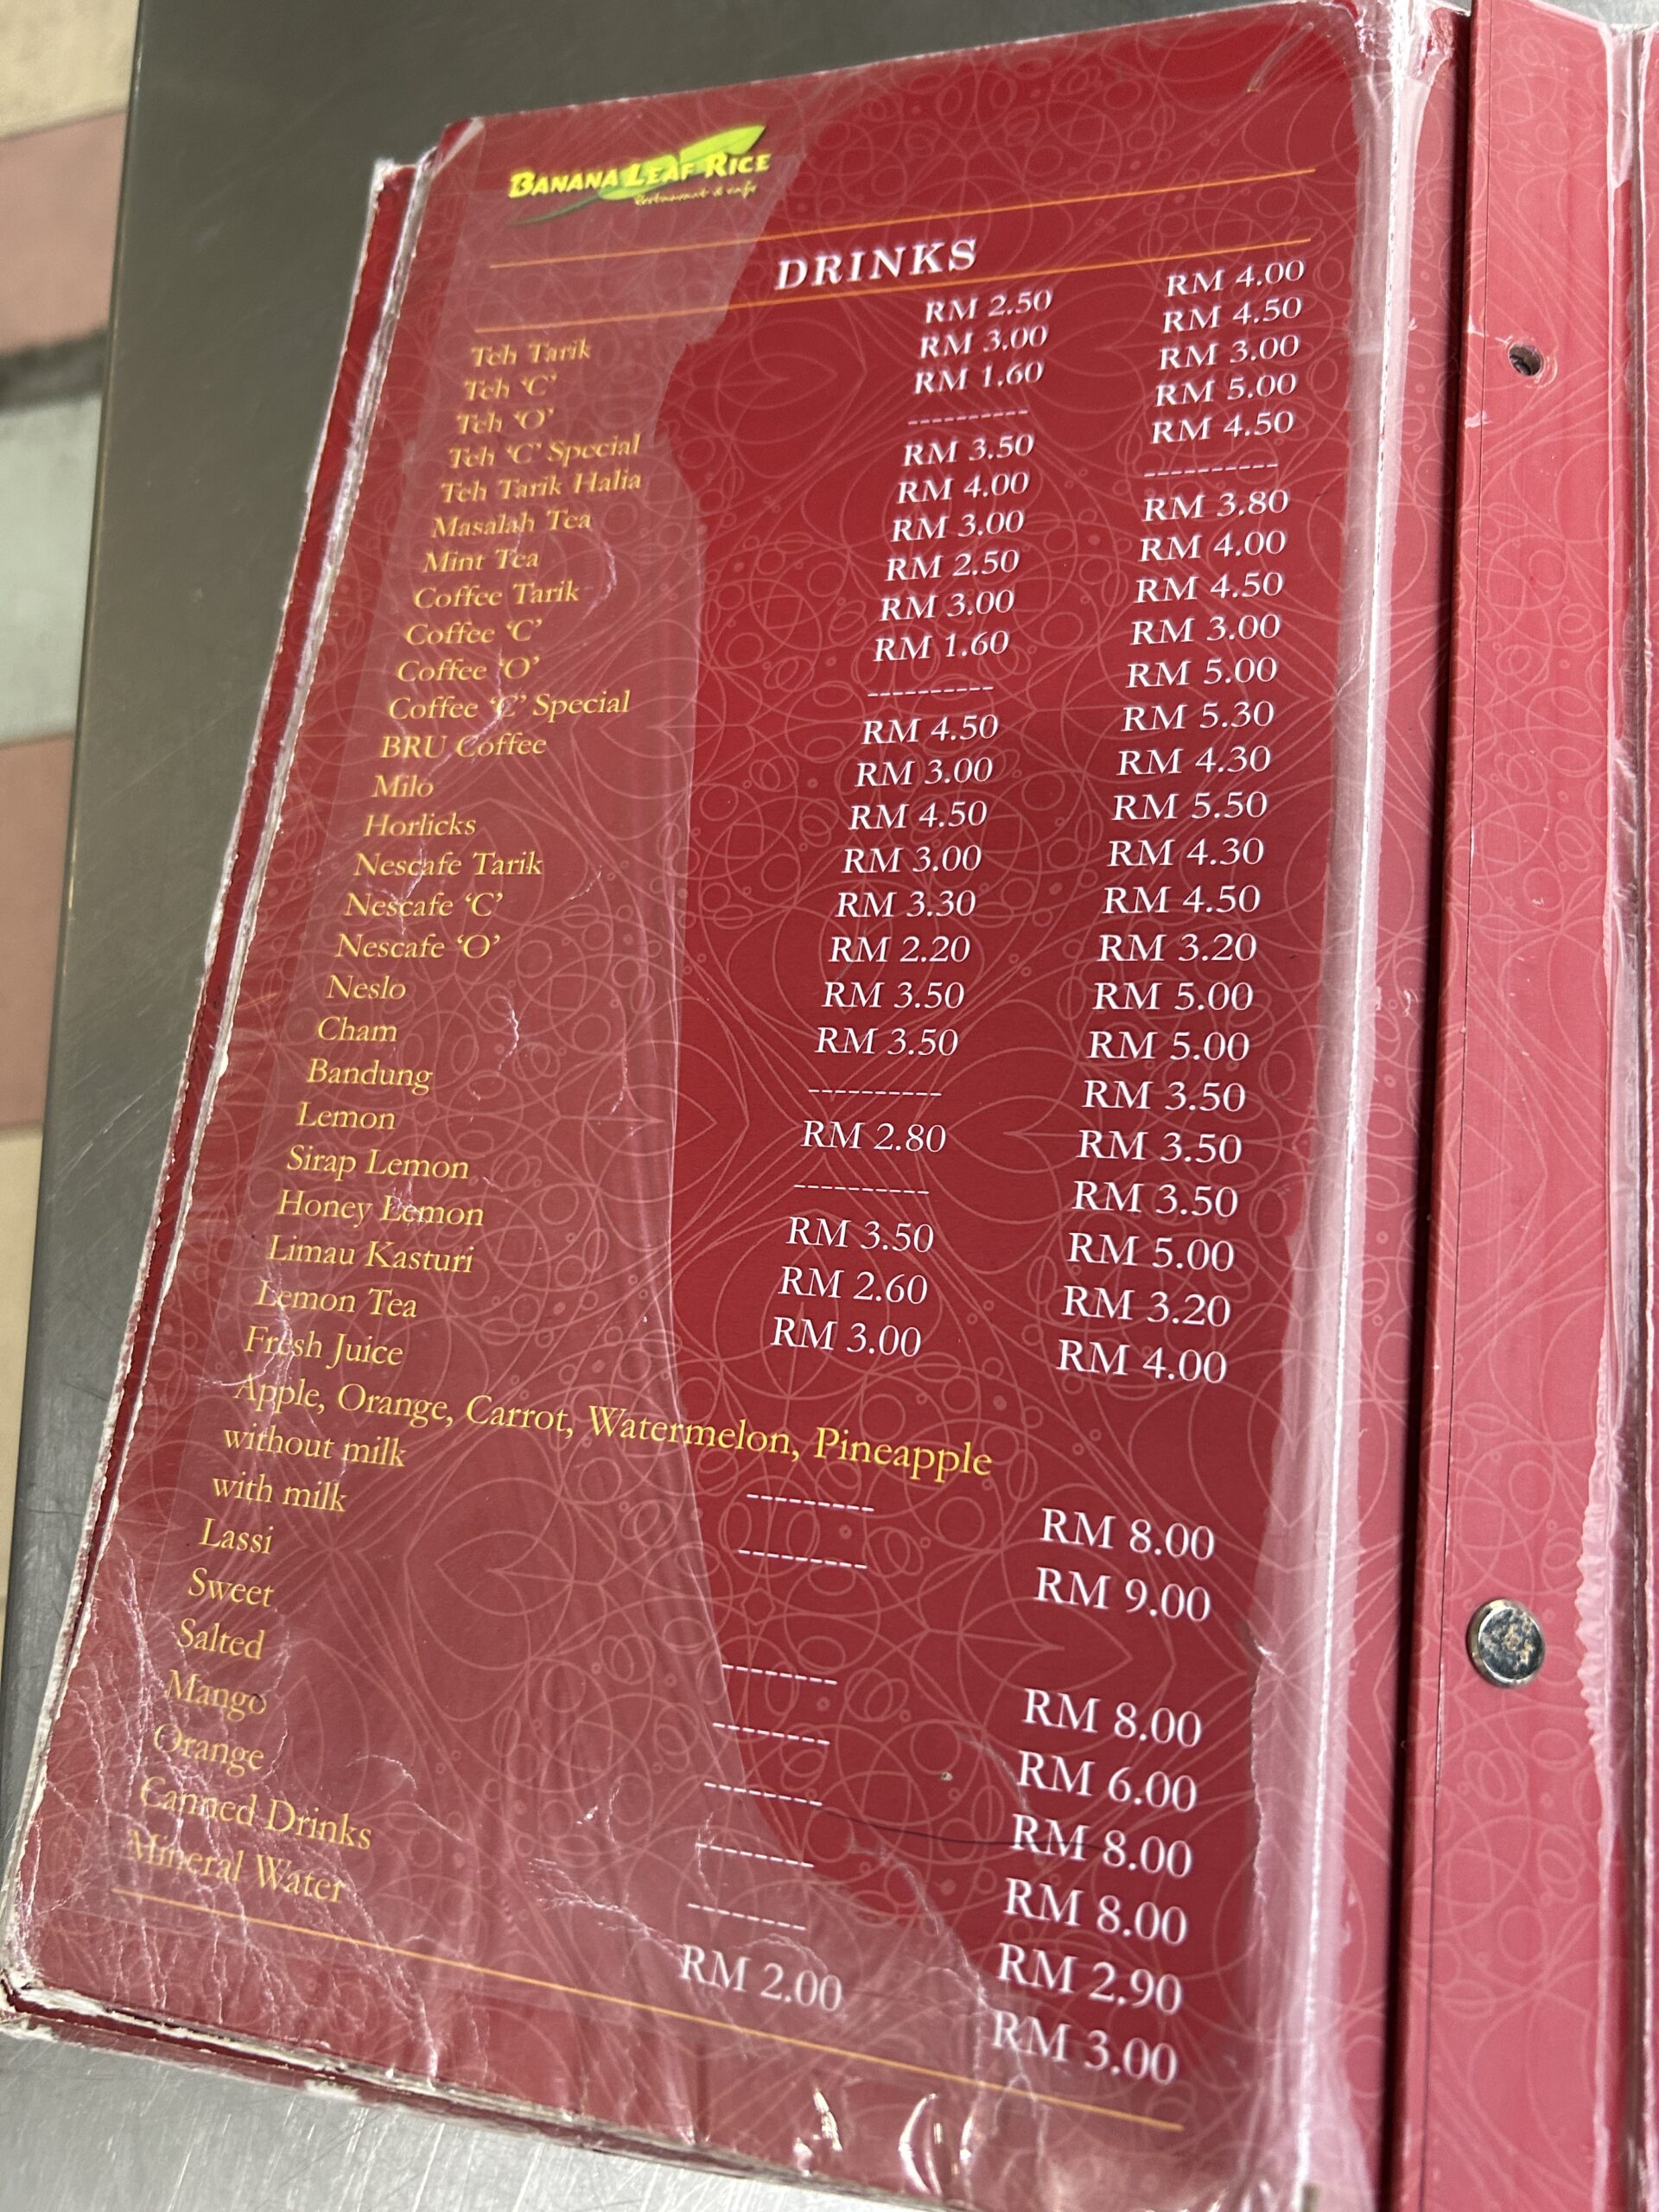 BANANA LEAF RICE
Restaurant & cafe
DRINKS
Teh Tarik RM 2.50 RM 4.00
Teh ‘C’ RM 3.00 RM 4.50
Teh ‘O’ RM 1.60 RM 3.00
Teh ‘C’ Special ---------- RM 5.00
Teh Tarik Halia RM 3.50 RM 4.50
Masalah Tea RM 4.00 ----------
Mint Tea RM 3.00 RM 3.80
Coffee Tarik RM 2.50 RM 4.00
Coffee ‘C’ RM 3.00 RM 4.50
Coffee ‘O’ RM 1.60 RM 3.00
Coffee ‘C’ Special ---------- RM 5.00
BRU Coffee RM 4.50 RM 5.30
Milo RM 3.00 RM 4.30
Horlicks RM 4.50 RM 5.50
Nescafe Tarik RM 3.00 RM 4.30
Nescafe ‘C’ RM 3.30 RM 4.50
Nescafe ‘O’ RM 2.20 RM 3.20
Neslo RM 3.50 RM 5.00
Cham RM 3.50 RM 5.00
Bandung ---------- RM 3.50
Lemon RM 2.80 RM 3.50
Sirap Lemon ---------- RM 3.50
Honey Lemon RM 3.50 RM 5.00
Limau Kasturi RM 2.60 RM 3.20
Lemon Tea RM 3.00 RM 4.00
Fresh Juice
Apple, Orange, Carrot, Watermelon, Pineapple
without milk --------- RM 8.00
with milk --------- RM 9.00
Lassi
Sweet -------- RM 8.00
Salted -------- RM 6.00
Mango -------- RM 8.00
Orange -------- RM 8.00
Canned Drinks -------- RM 2.90
Mineral Water RM 2.00 RM 3.00